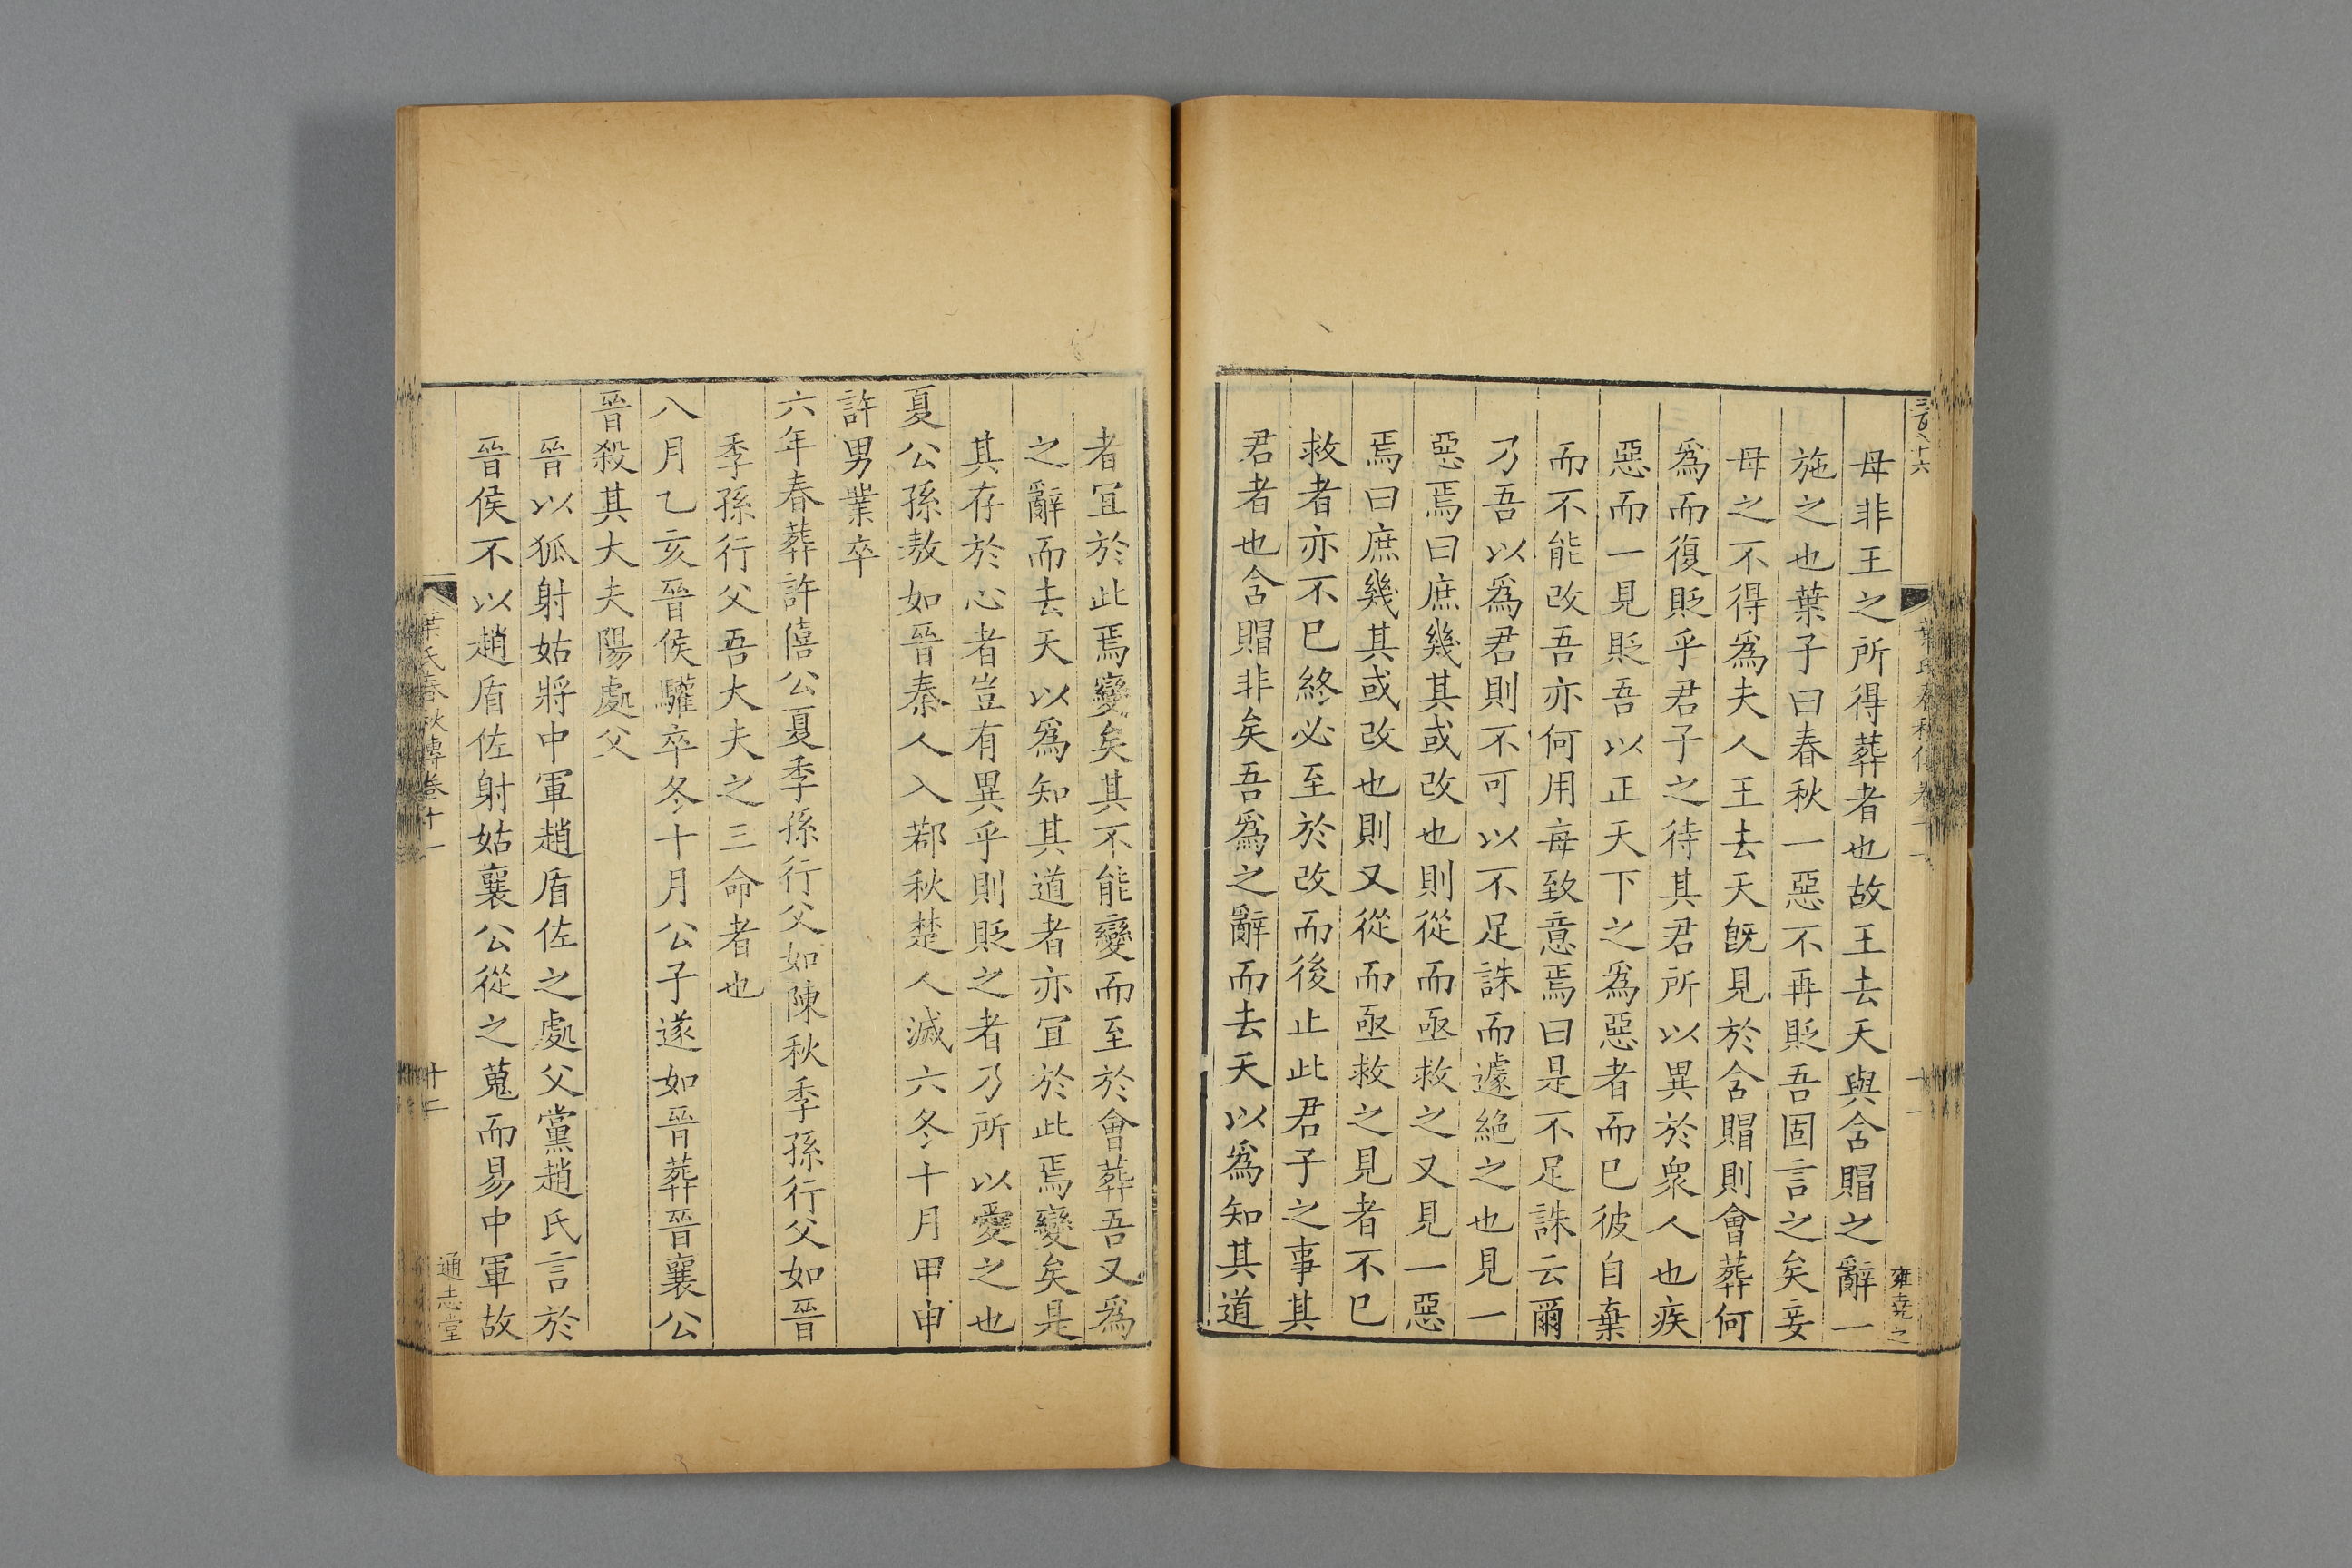 三百八十六
母非王之所得葬者也故王去天與含賵之辭一
施之也葉子曰春秋一惡不再貶吾固言之矣妾
母之不得爲夫人王去天旣見於含賵則會葬何
爲而復貶乎君子之待其君所以異於衆人也疾
惡而一見貶吾以正天下之爲惡者而已彼自棄
而不能改吾亦何用每致意焉曰是不足誅云爾
乃吾以爲君則不可以不足誅而遽絶之也見一
惡焉曰庶幾其或改也則從而亟救之又見一惡
焉曰庶幾其或改也則又從而亟救之見者不已
救者亦不已終必至於改而後止此君子之事其
君者也含賵非矣吾爲之辭而去天以爲知其道
者宜於此焉變矣其不能變而至於會葬吾又爲
之辭而去天以爲知其道者亦宜於此焉變矣是
其存於心者豈有異乎則貶之者乃所以愛之也
夏公孫敖如晉秦人入鄀秋楚人滅六冬十月甲申
許男業卒
六年春葬許僖公夏季孫行父如陳秋季孫行父如晉
季孫行父吾大夫之三命者也
八月乙亥晉侯驩卒冬十月公子遂如晉葬晉襄公
晉殺其大夫陽處父
晉以狐射姑將中軍趙盾佐之處父黨趙氏言於
晉侯不以趙盾佐射姑襄公從之蒐而易中軍故
葉氏春秋傳卷十一
十二
通志堂